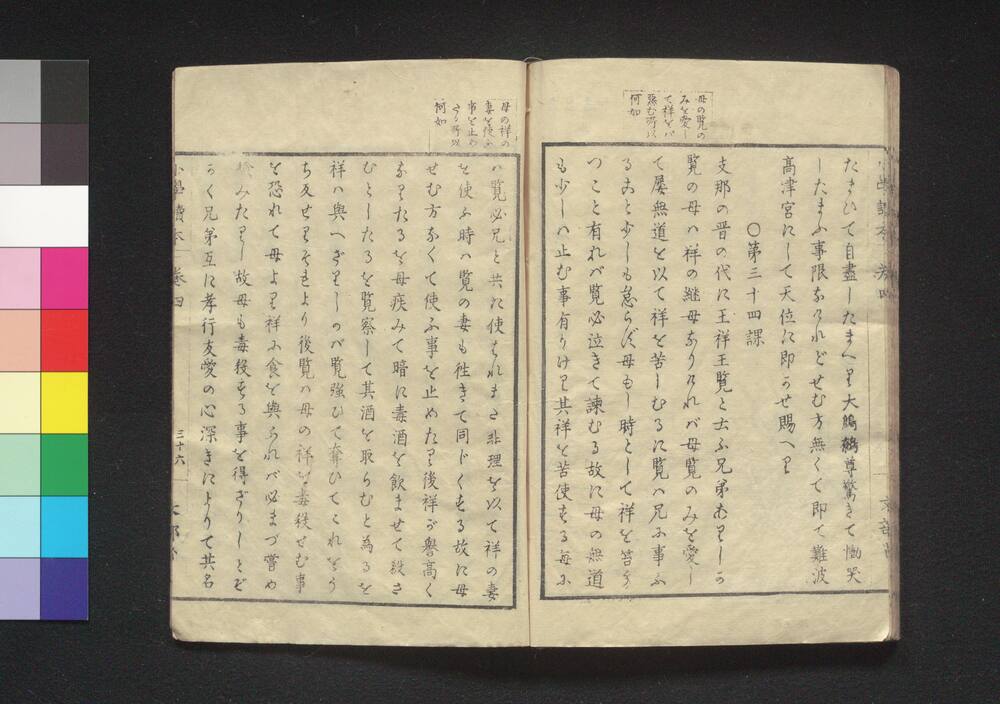 母の覧の
みを愛し
て祥をバ
惡む所以
何如
たまひて自盡したまへり大鷦鷯尊驚きて慟哭
したまふ事限なけれどせむ方無くて即て難波
高津宮にして天位に即かせ賜へり
○第三十四課
支那の晋の代に王祥王覧と云ふ兄弟ありしが
覧の母ハ祥の継母なりけれバ母覧のみを愛し
て屡無道を以て祥を苦しむるに覧ハ兄に事ふ
ること少しも怠らず母もし時として祥を笞う
つこと有れバ覧必泣きて諫むる故に母の無道
も少しハ止む事有りけり其祥を苦使する毎に
母の祥の
妻を使ふ
事を止め
さる所以
何如
ハ覧必兄と共に使はれまた非理を以て祥の妻
を使ふ時ハ覧の妻も往きて同じくする故に母
せむ方なくて使ふ事を止めたり後祥が譽高く
なりたるを母疾みて暗に毒酒を飲ませて殺さ
むとしたるを覧察して其酒を取らむと為るを
祥ハ與へざりしかバ覧強ひて奪ひてこれをう
ち反せりそれより後覧ハ母の祥を毒殺せむ事
を恐れて母より祥に食を與ふれバ必まづ嘗め
試みたりし故母も毒殺する事を得ざりしとぞ
かく兄弟互に孝行友愛の心深きによりて共名
小學讀本 巻四
三十六
文部省